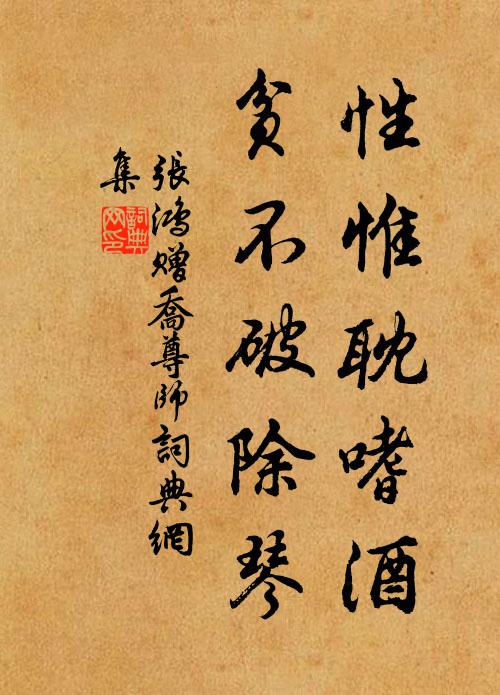 性惟耽嗜酒
貧不破除琴
張鴻贈喬尊師詞典網
集
詞典網印